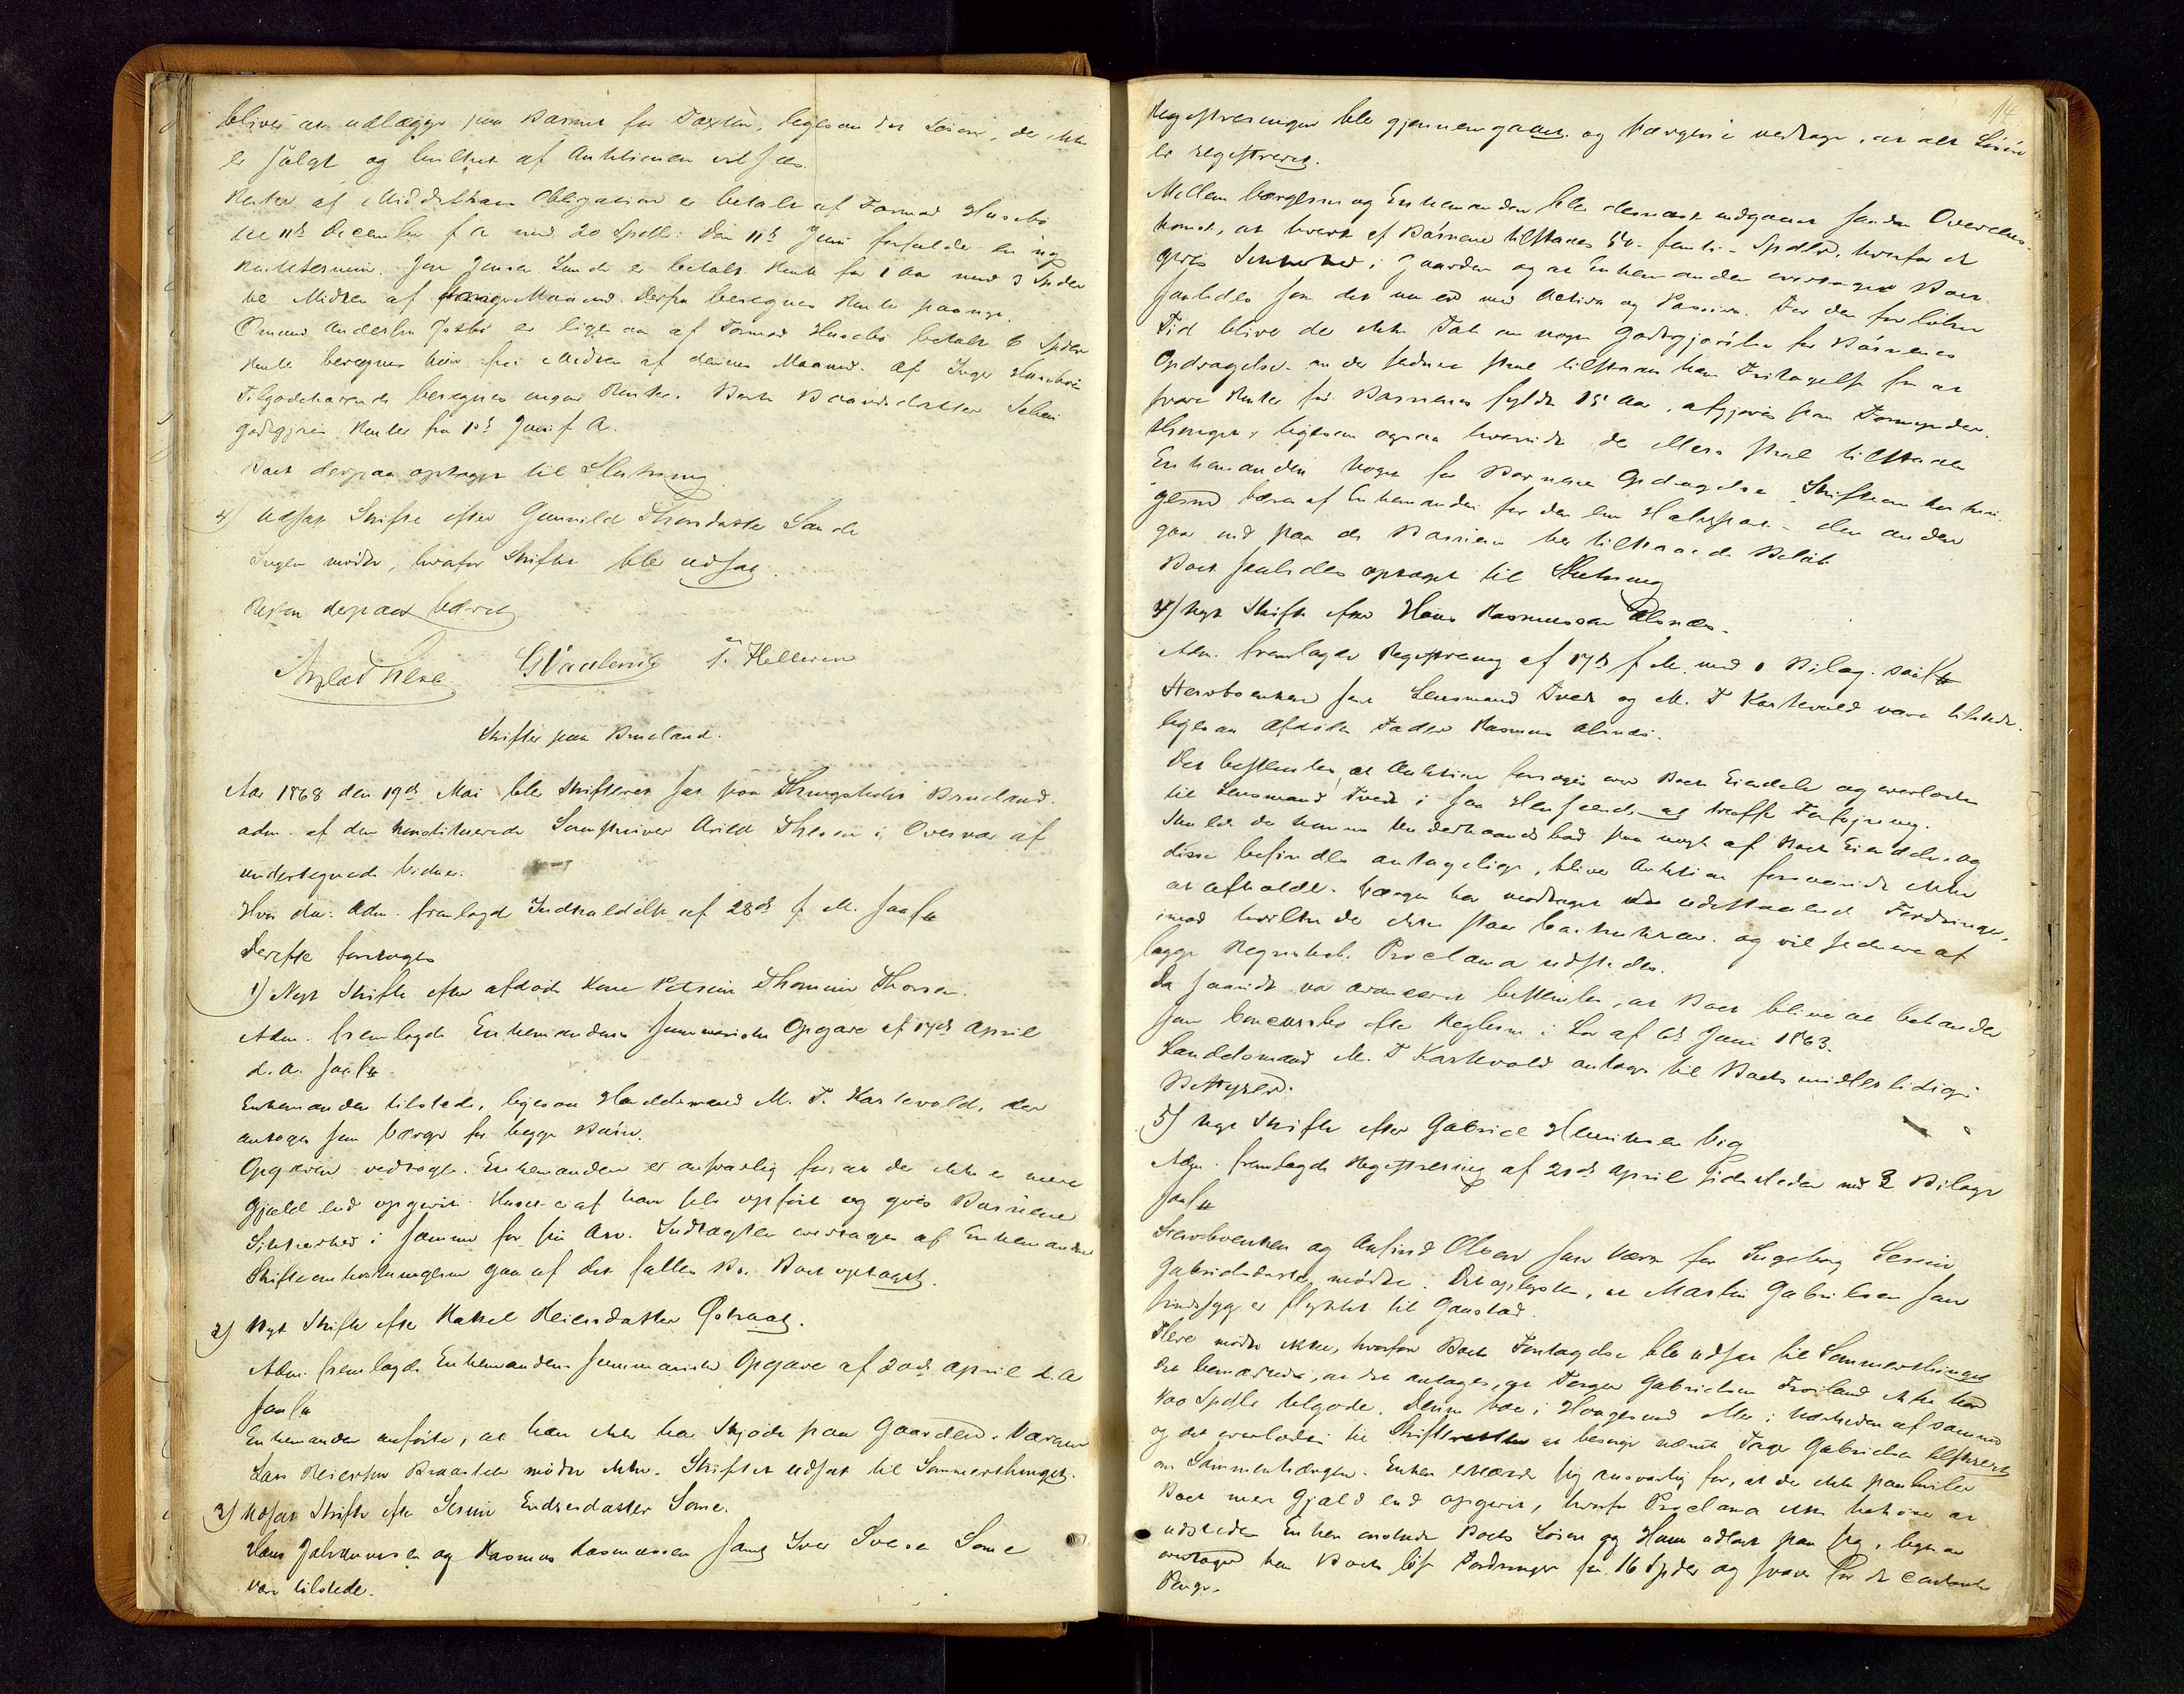 bliver at udlægge paa Barnet for Taxten, ligesom det Løsøre, der ikke
er solgt og hvilket af Auktionen vil sees.
Renter af Middelthons Obligation er betalt af Formand Husebø
til 11te December f A med 20 Spdlr. Den 11te Juni forfalder en ny
Rentetermin. Jon Jensen Sande er betalt Rente for 1 Aar med 3 Spdlr
til Midten af Maaned. Derfra beregnes Rente paany.
Omund Andersen er ligesaa af Formand Husebø betalt 6 Spdlr
Rente beregnes her fra Midten af denne Maaned. Af Inger Husebøs
Tilgodehavende beregnes ingen Renter. Berte Baardsdatter
godtgjøres Renter fra 1ste Juni f A.
Boet derpaa optaget til Slutning
4) Udsat Skifte efter Gunnild Thorsdatter Sande
Ingen mødte, hvorfor Skiftet blev udsat.
Retten derpaa hævet
Arild Thesen G Vaulen T. Helleren
Skifter paa Brueland.
Aar 1868 den 19de Mai blev Skifteret sat paa Thingstedet Brueland.
adm. af den konstituerede Sorenskriver Arild Thesen i Overvær af
undertegnede Vidner.
Hvor da: Adm. fremlagde Indkaldelse af 28de f. M. saal
Derefter foretoges
1) Nyt Skifte efter afdøde Kone Petrine Thomine Thorsen.
Adm. fremlagde Enkemandens summariske Opgave af 17de April
d. A. saal
Enkemanden tilstede, ligesaa Handelsmand M. T. Kartevold, der
antoges som Værge for begge Børn.
Opgaven vedtoges. Enkemanden er ansvarlig for, at der ikke er mere
Gjæld end opgivet. Huset er af ham selv opført og gives Børnene
Sikkerhed i samme for sin Arv. Indtægten overtages af Enkemanden
Skifteomkostningerne gaa af det fælles Bo. Boet optaget.
2) Nyt Skifte efter Rakel Reiersdatter Østraat.
Adm. fremlagde Enkemandens summariske Opgave af 20de April d. A
saal
Enkemanden anførte, at han ikke har Skjøde paa Gaarden. Værgen
Lars Reiersen Braastein mødte ikke. Skiftet udsat til Sommerthinget.
3) Udsat Skifte efter Serine Endresdatter Some.
Hans Jakobsen og Rasmus Rasmussen samt Iver Svensen Some
var tilstede.
14
Registreringen blev gjennemgaaet og Værgerne vedtage, at alt Løsøre
er registreret.
Mellem Værgerne og Enkemanden blev dernæst indgaaet saadan Overens-
komst, at hvert af Børnene tilstaaes 50 - femti - Spdlr, hvorfor der
gives Sikkerhed i Gaarden og at Enkemanden overtager Boet
saaledes som det nu er med Activa og Passiva. For den forløbne
Tid blive der ikke Tale om nogen Godtgjørelse for Børnenes
Opdragelse. om der siden skal tilstaaes ham Fritagelse for at
svare Renter før Børnenes fyldte 15 Aar, afgjøres paa Formynder-
thinget, ligesom ogsaa hvorvidt der ellers skal tilstaaes
Enkemanden Noget for Børnenes Opdragelse. Skifteomkostnin-
gerne bæres af Enkemanden for den ene Halvpart - den anden
gaar ind paa de Børnene her tilstaaede Beløb.
Boet saaledes optaget til Slutning
4) Nyt Skifte efter Hans Rasmussen Alsnes.
Adm. fremlagde Registrering af 17de f. M. med 1 Bilag. saal
Stervboenken samt Lensmand Tveit og M. T Kartevold vare tilstede.
ligesaa Afdødes Fader Rasmus Alsnes.
Det besluttedes, at Auktion foretages over Boets Eiendele og overlodes
til Lensmand Tveit i saa Henseende at træffe Forføining.
Skulde der komme Underhaandsbud paa noget af Boets Eiendele, og
disse befindes antagelige, bliver Auktion forsaavidt ikke
at afholde. Værgen har modtaget udestaaende Fordringer,
imod hvilke der ikke staar Contrakrav. og vil siden af
lægge Regnskab. Proclama udstedes.
Da saavidt var avanceret besluttedes, at Boet bliver at behandle
som Concursbo efter Reglerne i Lov af 6te Juni 1863.
Landelsmand M. T Kartevold antages til Boets midlertidige
Bestyrer.
5) Nyt Skifte efter Gabriel Henriksen Vig
Adm. fremlagde Registrering af 21de April sidstleden med 2 Bilage
saal
Stervboenken og Anfind Olsen som Værge for Ingeborg Serine
Gabrielsdatter mødte. Det oplystes, at Martin Gabrielsen som
sindssyg er flyttet til Gaustad.
Flere mødte ikke, hvorfor Boets Foretagelse blev udsat til Sommerthinget
det bemærkedes, at det antages, at Torger Gabrielsen Frøiland ikke har
400 Spdlr tilgode. Denne bor i Haugesund eller i Nærheden af samme
og det overlodes til Skifteretten at besørge nævnte Torger Gabrielsen tilskrevet
om Sammenhængen. Enken erklærede sig ansvarlig for, at der ikke paahviler
Boet mere Gjæld end opgivet, hvorfor Proclama ikke behøver at
udstedes. Enken ønskede Boets Løsøre og Huus udlagt paa sig, ligesom
overtaget hun Boets løse Fordringer for 16 Spdlr og svarer for de contante
Penge.